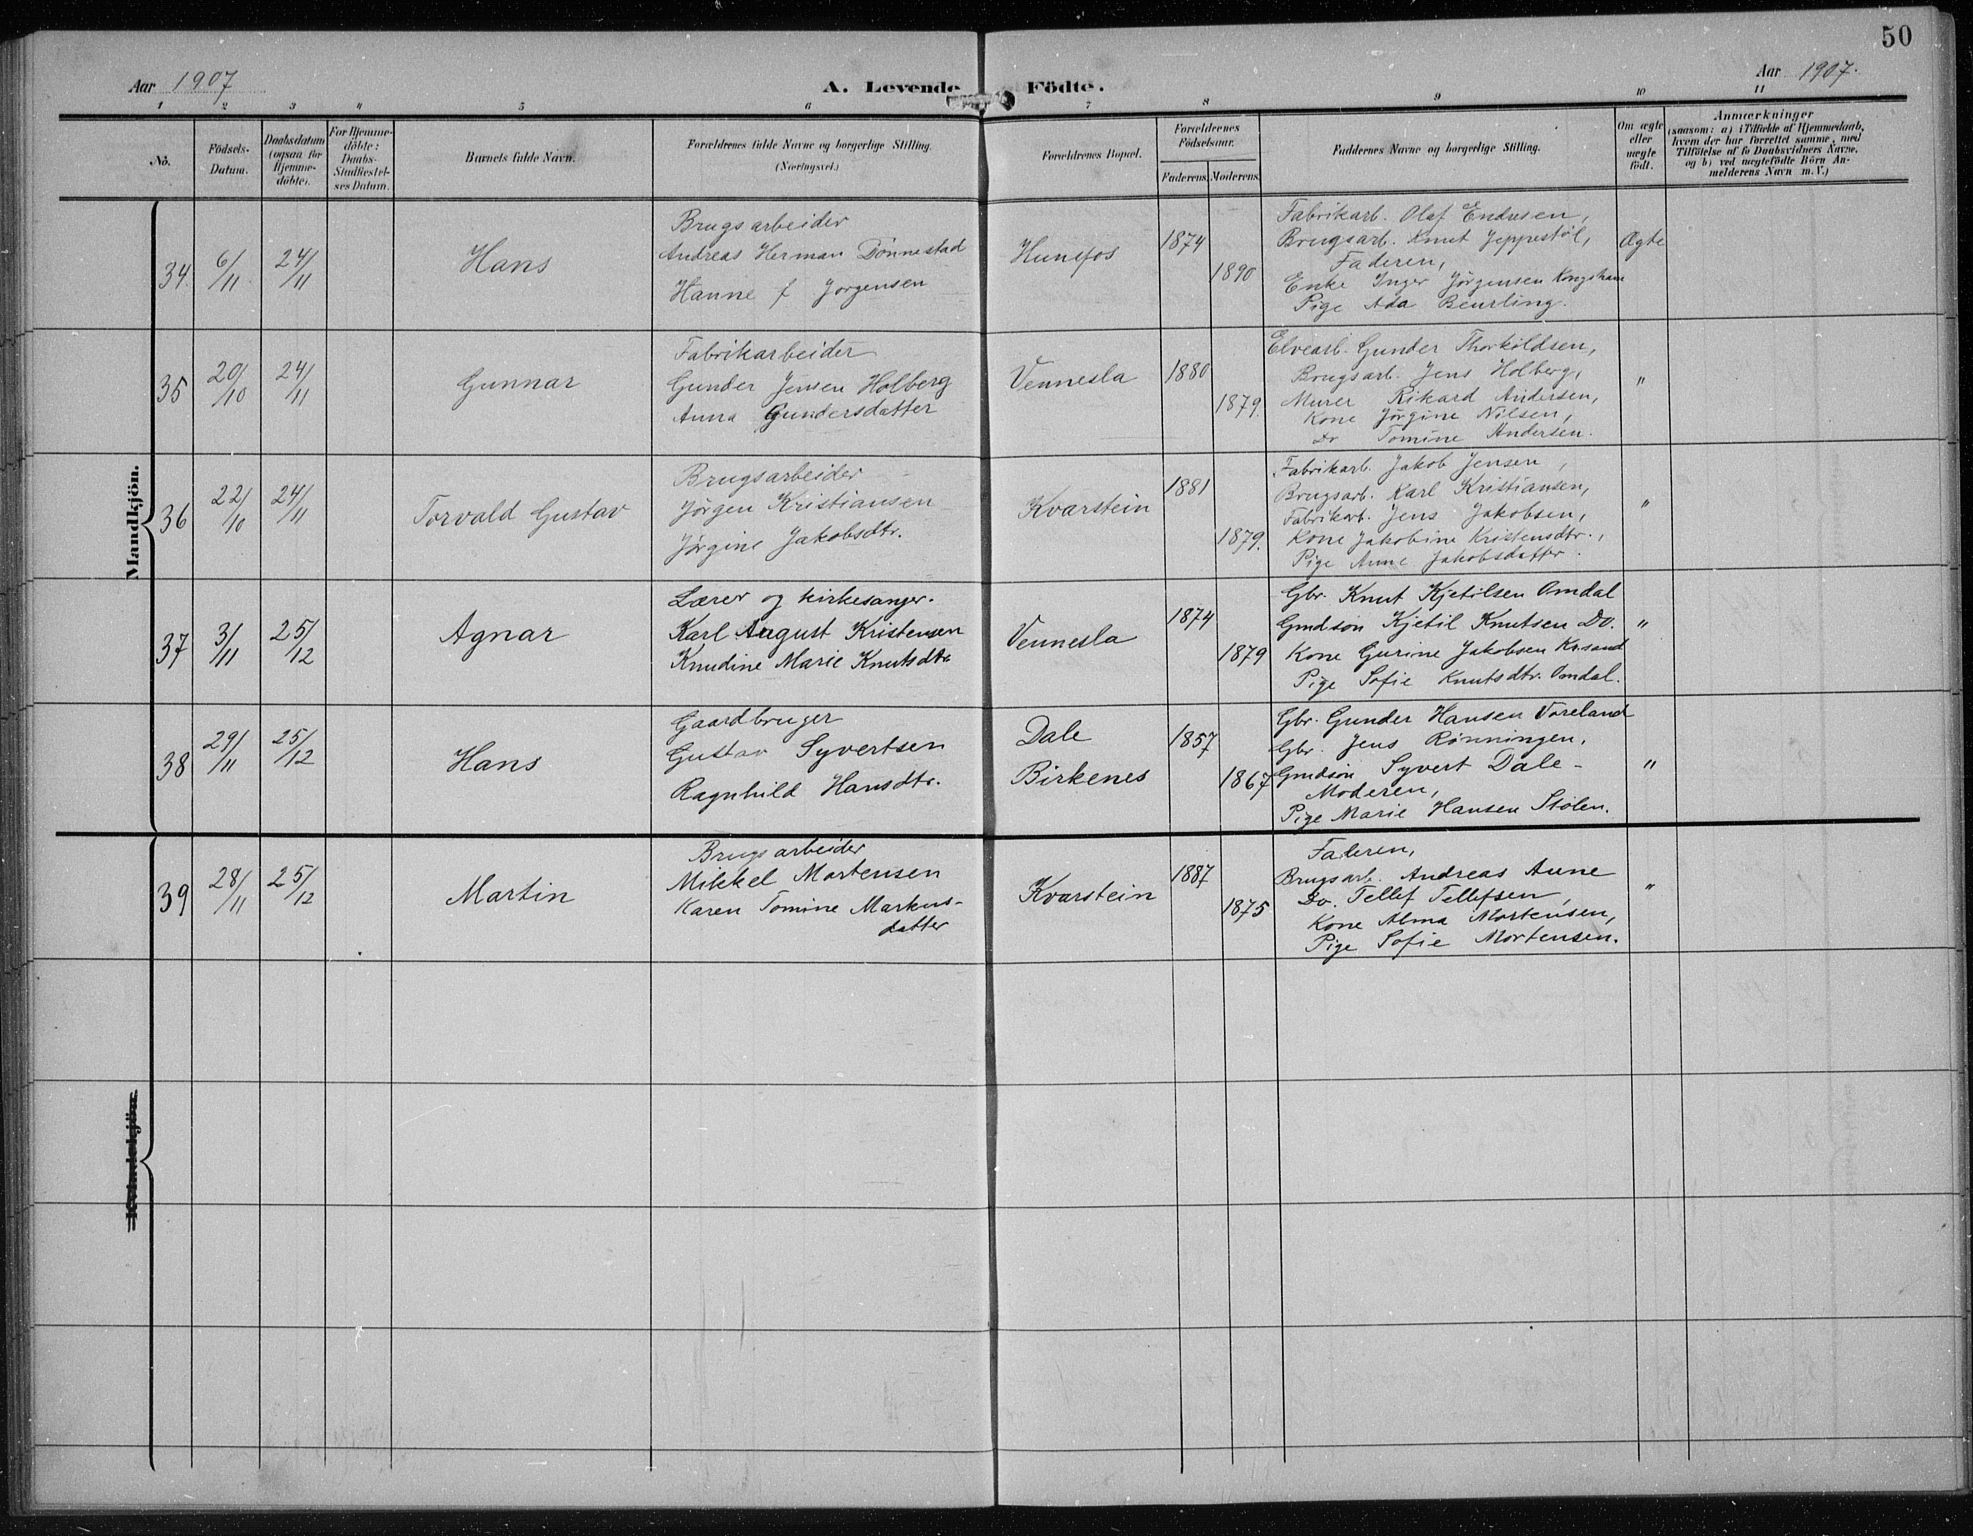 50
Aar 1907
A. Levende Födte.
Aar 1907.
1 2 3 " 5 6 7 8 9 10 11
No.
Födsels-Datum.
Daabsdatum (ogsaa for Hjemme-döbte).
For Hjemme-döbte: Daabs-Stadfæstel-ses Datum.
Barnets fulde Navn.
Forældrenes fulde Navne og borgerlige Stilling. (Næringsvei.)
Forældrenes Bopæl.
Forældrenes Födselsaar.
Faderens. Moderens.
Faddernes Navne og borgerlige Stilling.
Om ægte eller uægte födt.
Anmærkninger
(saasom: a) i Tilfælde af Hjemmedaab,
hvem der har forrettet samme, med
Tilföielse af to Daabsvidners Navne,
og b) ved uægtefödte Börn An-
melderens Navn m. V.)
Mandkjön.
34. 6/11 24/11
Hans
Brugsarbeider
Andreas Herman Dønnestad
Hanne f Jørgensen
Hunsfos
1874
1890
Fabrikarb. Olaf Endresen,
Brugsarb. Knut Jeppestøl,
Faderen,
Enke Inger Jørgensen Kongshavn
Pige Ada Beurling.
Ægte
35 20/10 24/11
Gunnar
Fabrikarbeider
Gunder Jensen Holberg
Anna Gundersdatter
Vennesla
1880
1879.
Elvearb. Gunder Thorkildsen,
Brugsarb. Jens Holberg,
Murer Rikard Andersen,
Kone Jørgine Nilsen,
Do Tomine Andersen.
"
36 22/10 24/11
Torvald Gustav
Brugsarbeider
Jørgen Kristiansen
Jørgine Jakobsdtr.
Kvarstein
1881
1879.
Fabrikarb. Jakob Jensen,
Brugsarb. Karl Kristiansen,
Fabrikarb. Jens Jakobsen,
Kone Jakobine Kristensdtr.,
Pige Anne Jakobsdatter.
"
37 3/11 25/12
Agnar
Lærer og kirkesanger.
Karl August Kristensen
Knudine Marie Knutsdtr
Vennesla
1874
1879
Gbr. Knut Kjetilsen Omdal
Gmdsøn Kjetil Knutsen Do.
Kone Gurine Jakobsen Krsand
Pige Sofie Knutsdtr. Omdal.
"
38 29/11 25/12
Hans
Gaardbruger
Gustav Syvertsen
Ragnhild Hansdtr.
Dale
Birkenes
1857
1867
Gbr. Gunder Hansen Voreland
Gbr. Jens Rønningen,
Gmdsøn Syvert Dale -
Moderen,
Pige Marie Hansen Stølen.
"
39 28/11 25/12
Martin
Brugsarbeider
Mikkel Mortensen
Karen Tomine Markus-
datter
Kvarstein
1887
1875
Faderen,
Brugsarb. Andreas Aune
Do. Tellef Tellefsen,
Kone Alma Mortensen,
Pige Sofie Mortensen.
"
Kvindekjön.